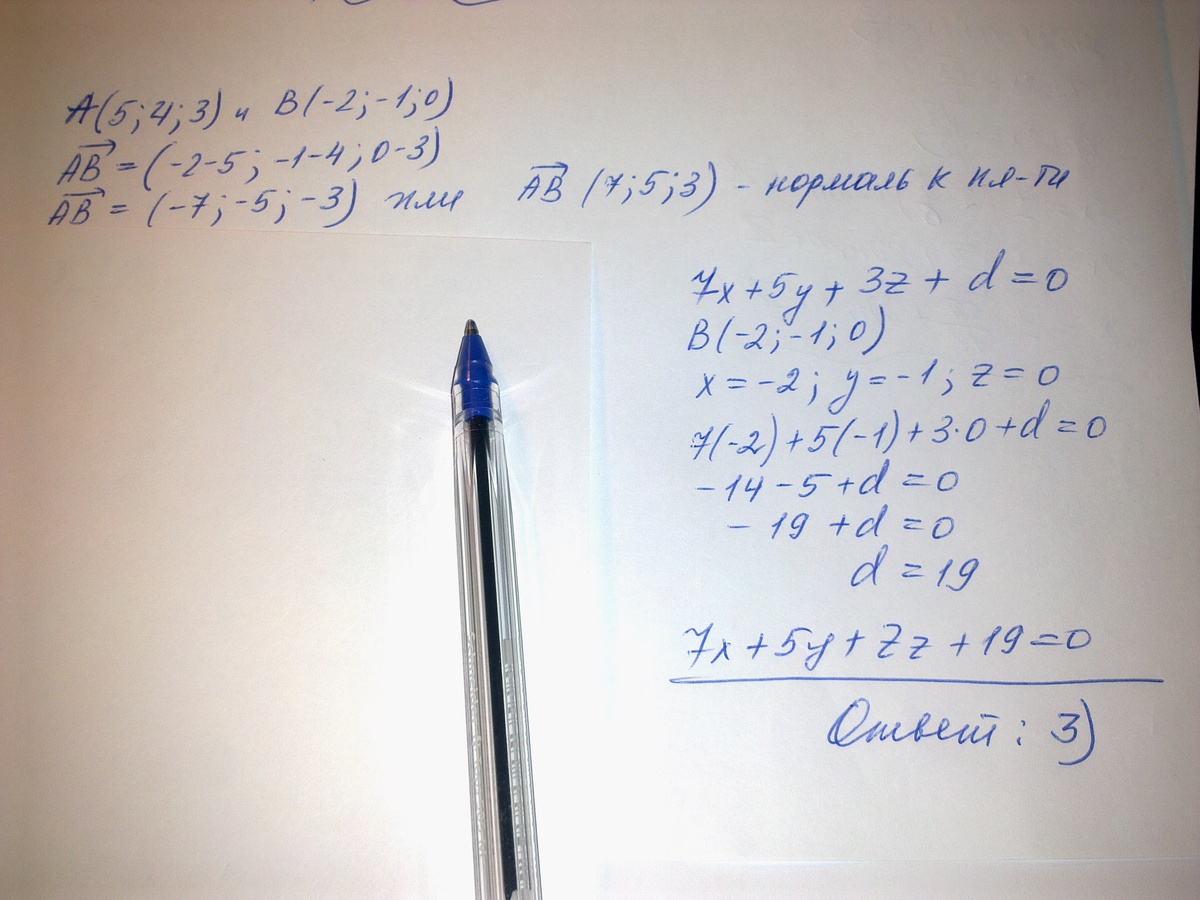 A(5;4;3) и B(-2;-1;0)
AB = (-2-5; -1-4; 0-3)
AB = (-7; -5; -3) или AB (7;5;3) - нормаль к пл-ти
7x+5y+3z+d=0
B(-2;-1;0)
x=-2; y=-1; z=0
7(-2)+5(-1)+3·0+d=0
-14-5+d=0
-19+d=0
d=19
7x+5y+Zz+19=0
Ответ: 3)